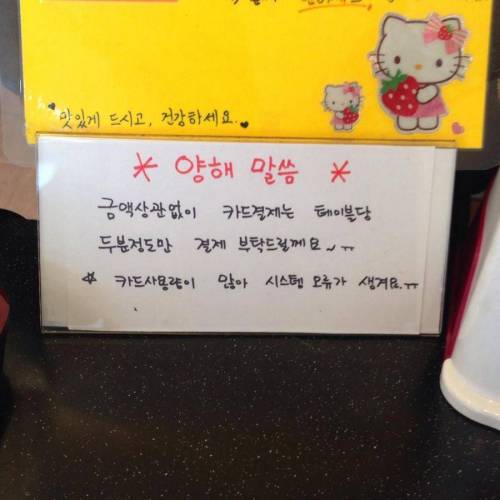 맛있게 드시고, 건강하세요.
* 양해 말씀 *
금액상관없이 카드결제는 테이블당
두분정도만 결제 부탁드릴께요~ㅠ
☆ 카드사용량이 많아 시스템 오류가 생겨요.ㅠ